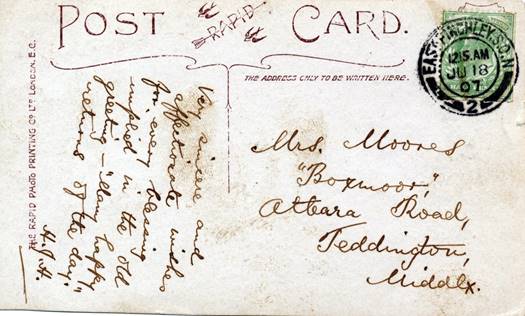 POST CARD.
RAPID
THE ADDRESS ONLY TO BE WRITTEN HERE.
EAST FINCHLEY S.O.N
12.15 AM
JU 18
07
2
THE RAPID PHOTO PRINTING CO LTD LONDON, E.C.
Very sincere and
affectionate wishes
for every blessing
implied in the old
greeting - "Many happy
returns of the day."
H.J.H.
Mrs. Moores
"Boxmoor,"
Atbara Road,
Teddington,
Middlx.